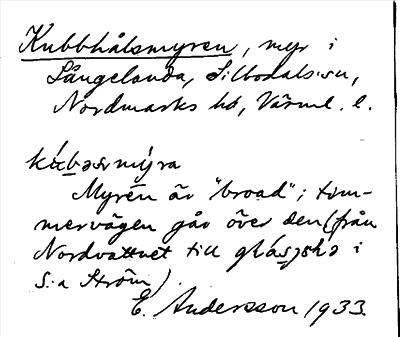 Kubbhålsmyren, myr i
Långelanda, Silbodals sn,
Nordmarks hd, Värml. l.
kúbəsrmýra
Myren är "broad"; tim-
mervägen går över den (från
Nordvattnet till i
S:a Ström).
E. Andersson 1933.